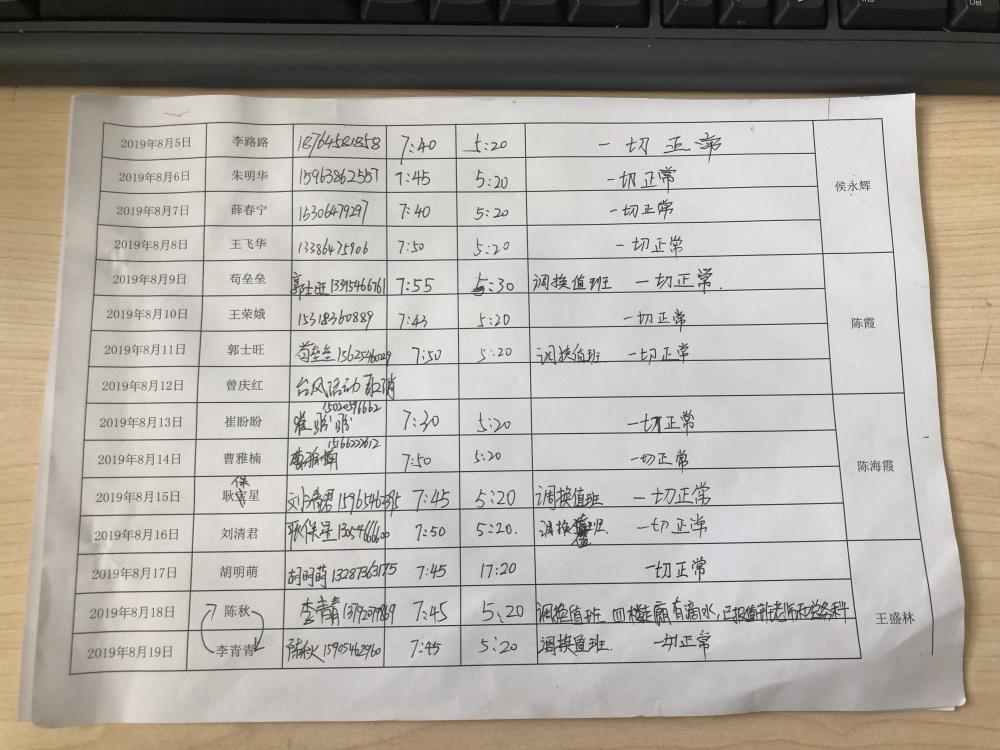 2019年8月5日 李路路 18764581858 7:40 5:20 一切正常 侯永辉
2019年8月6日 朱明华 15963862557 7:45 5:20 一切正常
2019年8月7日 薛春宁 15306479297 7:40 5:20 一切正常
2019年8月8日 王飞华 13386475906 7:50 5:20 一切正常
2019年8月9日 苟垒垒 郭士旺 13915466761 7:55 5:30 调换值班 一切正常. 陈霞
2019年8月10日 王荣娥 15318360889 7:43 5:20 一切正常
2019年8月11日 郭士旺 苟垒垒 15625546029 7:50 5:20 调换值班 一切正常
2019年8月12日 曾庆红 台风活动取消
2019年8月13日 崔盼盼 崔盼盼 15020596662 7:30 5:20 一切正常 陈海霞
2019年8月14日 曹雅楠 曹雅楠 15166222612 7:50 5:20 一切正常
2019年8月15日 耿保星 刘清君 7:45 5:20 调换值班 一切正常
2019年8月16日 刘清君 耿保星 13054666600 7:50 5:20. 调换值班 一切正常
2019年8月17日 胡明萌 胡明萌 13287363175 7:45 17:20 一切正常 王盛林
2019年8月18日 陈秋 李青青 7:45 5:20 调换值班 四楼走廊有滴水,已报值班老师和总务科
2019年8月19日 李青青 陈秋 15905462960 7:45 5:20 调换值班. 一切正常
Del